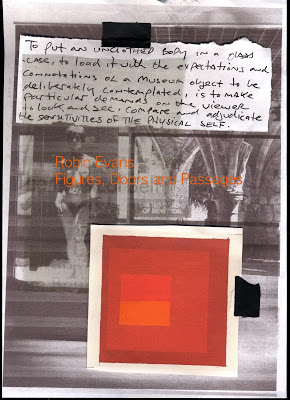 TO PUT AN UNCLOTHED BODY IN A GLASS
-CASE, TO LOAD IT WITH THE EXPECTATIONS AND
CONNOTATIONS OF A MUSEUM OBJECT TO BE
DELIBERATELY CONTEMPLATED, IS TO MAKE
PARTICULAR DEMANDS ON THE VIEWER
TO LOOK AND SEE. COMPARE AND ADJUDICATE
THE SENSITIVITIES OF THE PHYSICAL SELF.
Robin Evans
Figures, Doors and Passages